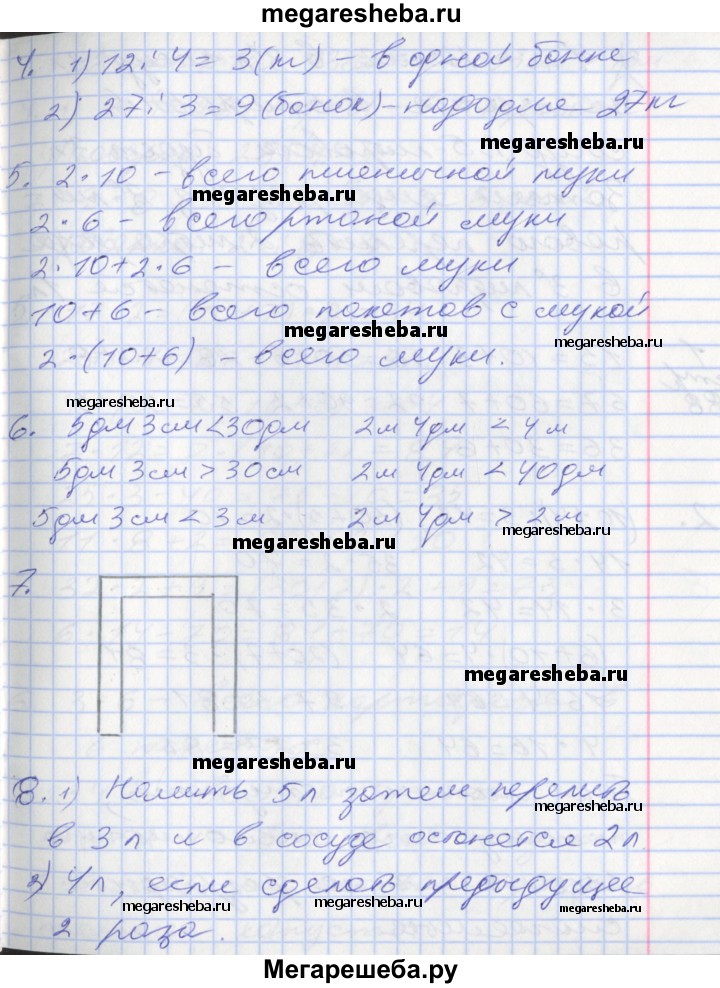 megaresheba.ru
4. 1) 12 : 4 = 3 (кг) – в одной банке
2) 27 : 3 = 9 (банок) – надо для 27 кг
megaresheba.ru
5. 2·10 – всего пшеничной муки
megaresheba.ru
2·6 – всего ржаной муки
2·10+2·6 – всего муки
10+6 – всего пакетов с мукой
megaresheba.ru
megaresheba.ru
2·(10+6) – всего муки.
megaresheba.ru
6. 5дм 3см < 30дм 2м 4дм < 4м
5дм 3см > 30см 2м 4дм < 40дм
5дм 3см < 3м 2м 4дм > 2м
megaresheba.ru
megaresheba.ru
7.
megaresheba.ru
megaresheba.ru
8. 1) Налить 5л затем перелить
megaresheba.ru
в 3л и в сосуде останется 2л.
2) 4л, если сделать предыдущее
megaresheba.ru megaresheba.ru megaresheba.ru
2 раза.
Мегарешеба.ру